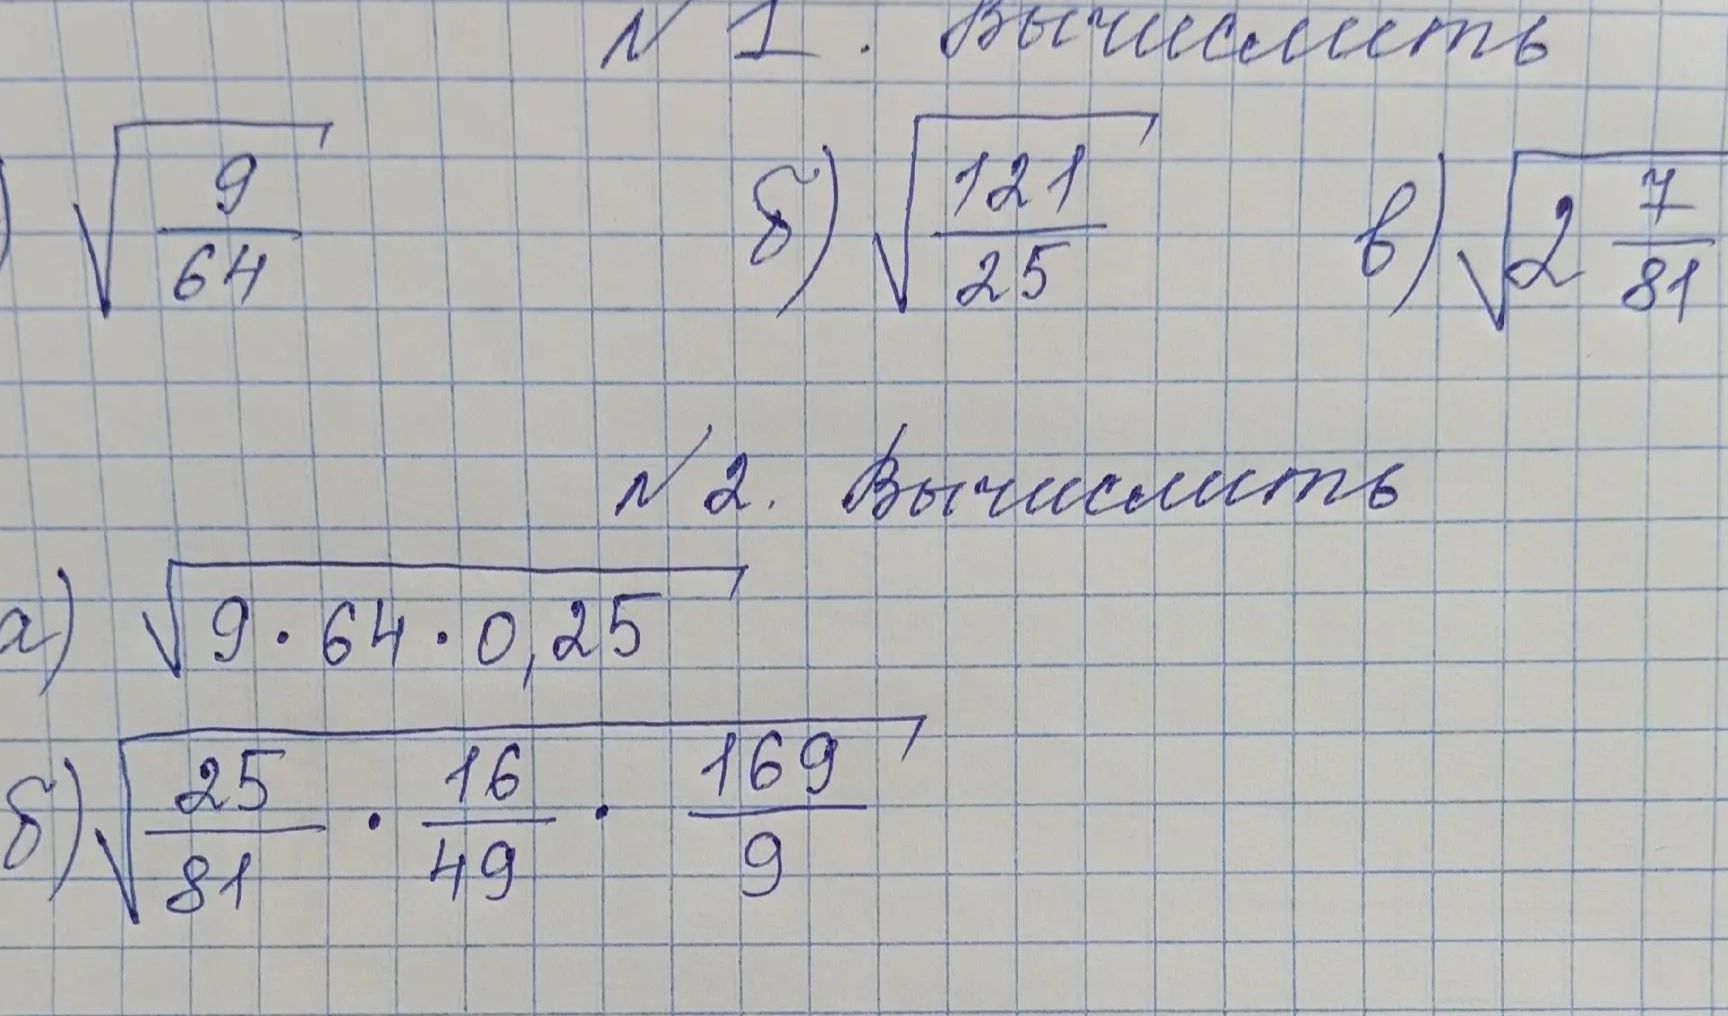 № 1. Вычислить
) √(9/64) б) √(121/25) в) √(2 7/81)
№ 2. Вычислить
а) √(9 · 64 · 0,25)
б) √(25/81 · 16/49 · 169/9)